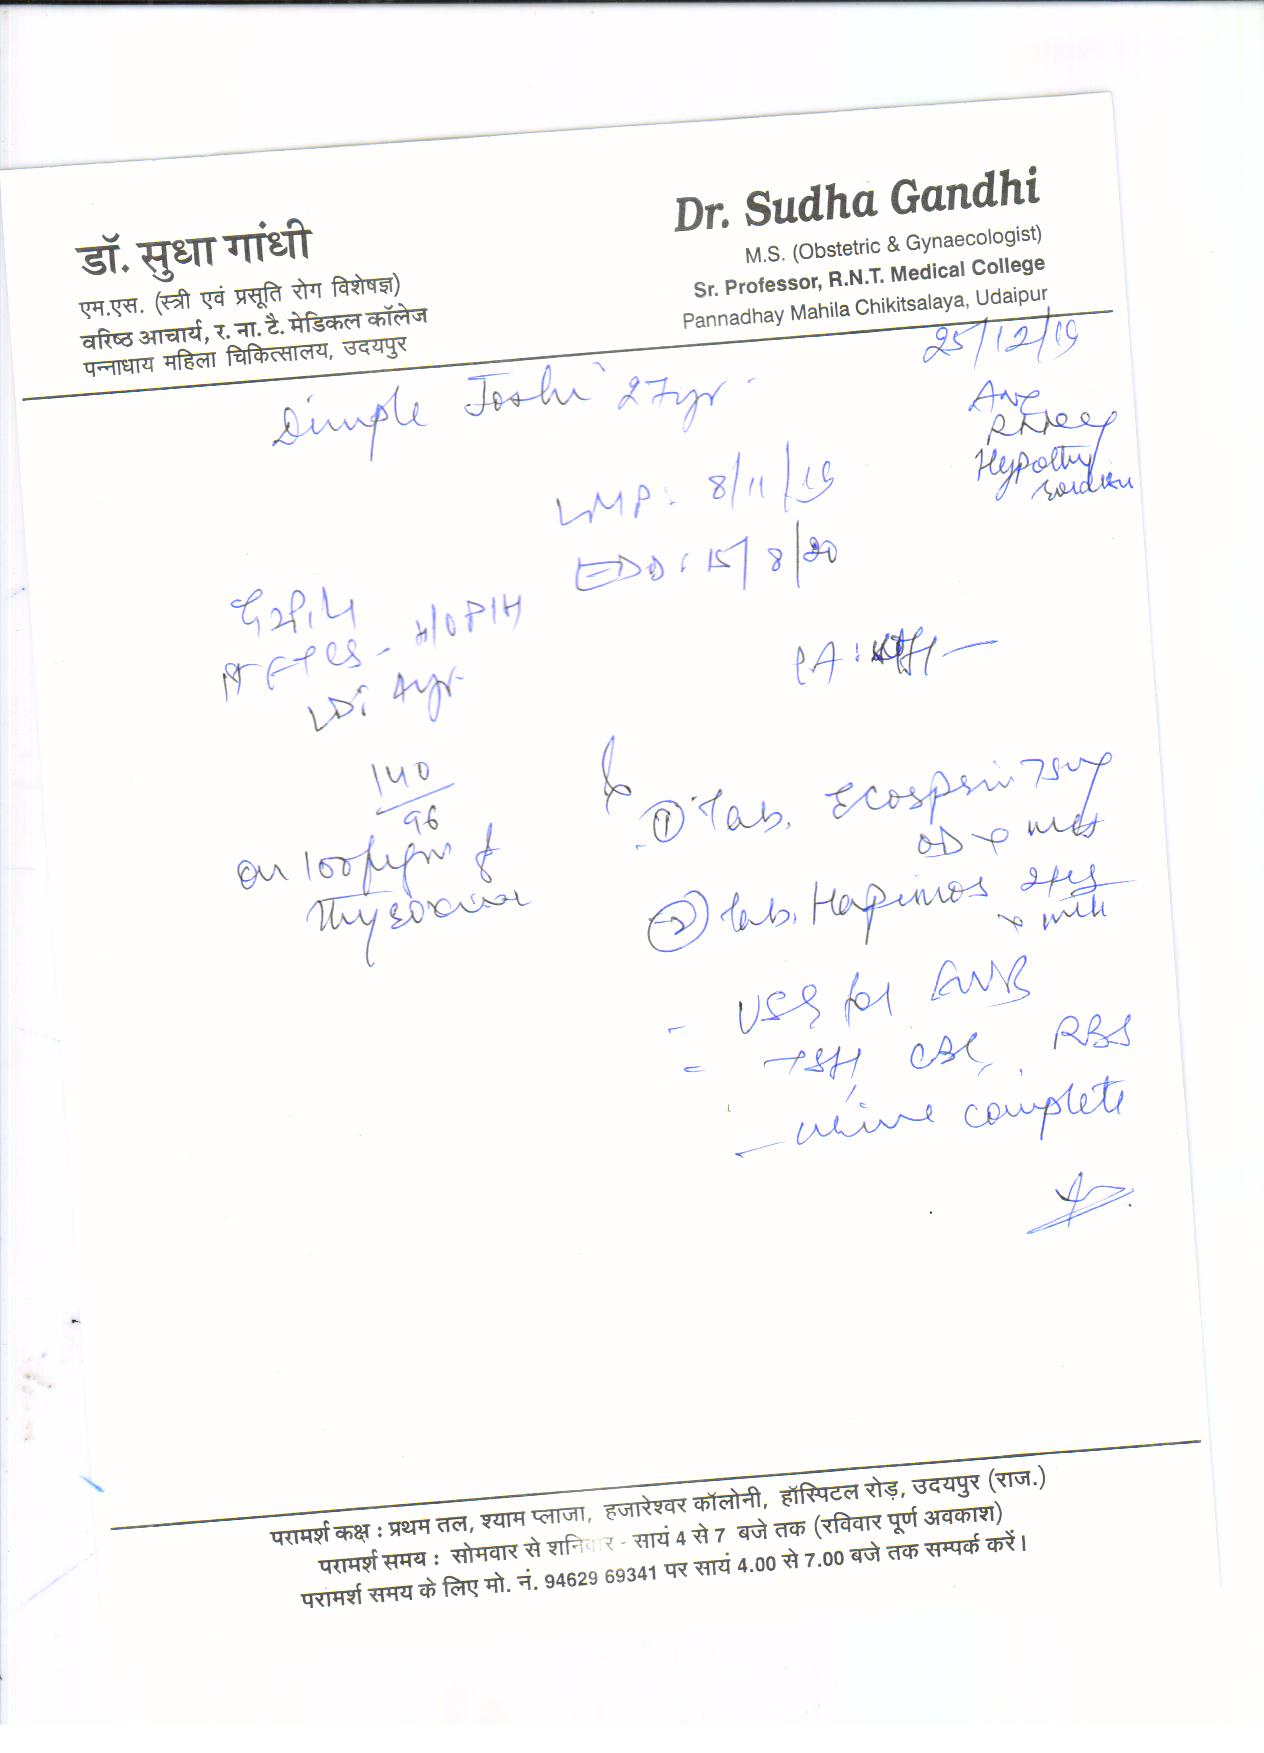 डॉ. सुधा गांधी
एम.एस. (स्त्री एवं प्रसूति रोग विशेषज्ञ)
वरिष्ठ आचार्य, र. ना. टै. मेडिकल कॉलेज
पन्नाधाय महिला चिकित्सालय, उदयपुर
Dr. Sudha Gandhi
M.S. (Obstetric & Gynaecologist)
Sr. Professor, R.N.T. Medical College
Pannadhay Mahila Chikitsalaya, Udaipur
25/12/19
Dimple Joshi 27yr.
LMP: 8/11/19
EDD: 15/8/20
FTCS - H/O PIH
LD: 4yr
PA:
140
96
on 100 μgm of
Thyroxine
① Tab. Ecosprin 75mg
OD x mth
② Tab.
x mth
- USG for
= TSH, CBC, RBS
- urine complete
परामर्श कक्ष : प्रथम तल, श्याम प्लाजा, हजारेश्वर कॉलोनी, हॉस्पिटल रोड़, उदयपुर (राज.)
परामर्श समय : सोमवार से शनिवार - सायं 4 से 7 बजे तक (रविवार पूर्ण अवकाश)
परामर्श समय के लिए मो. नं. 94629 69341 पर सायं 4.00 से 7.00 बजे तक सम्पर्क करें।